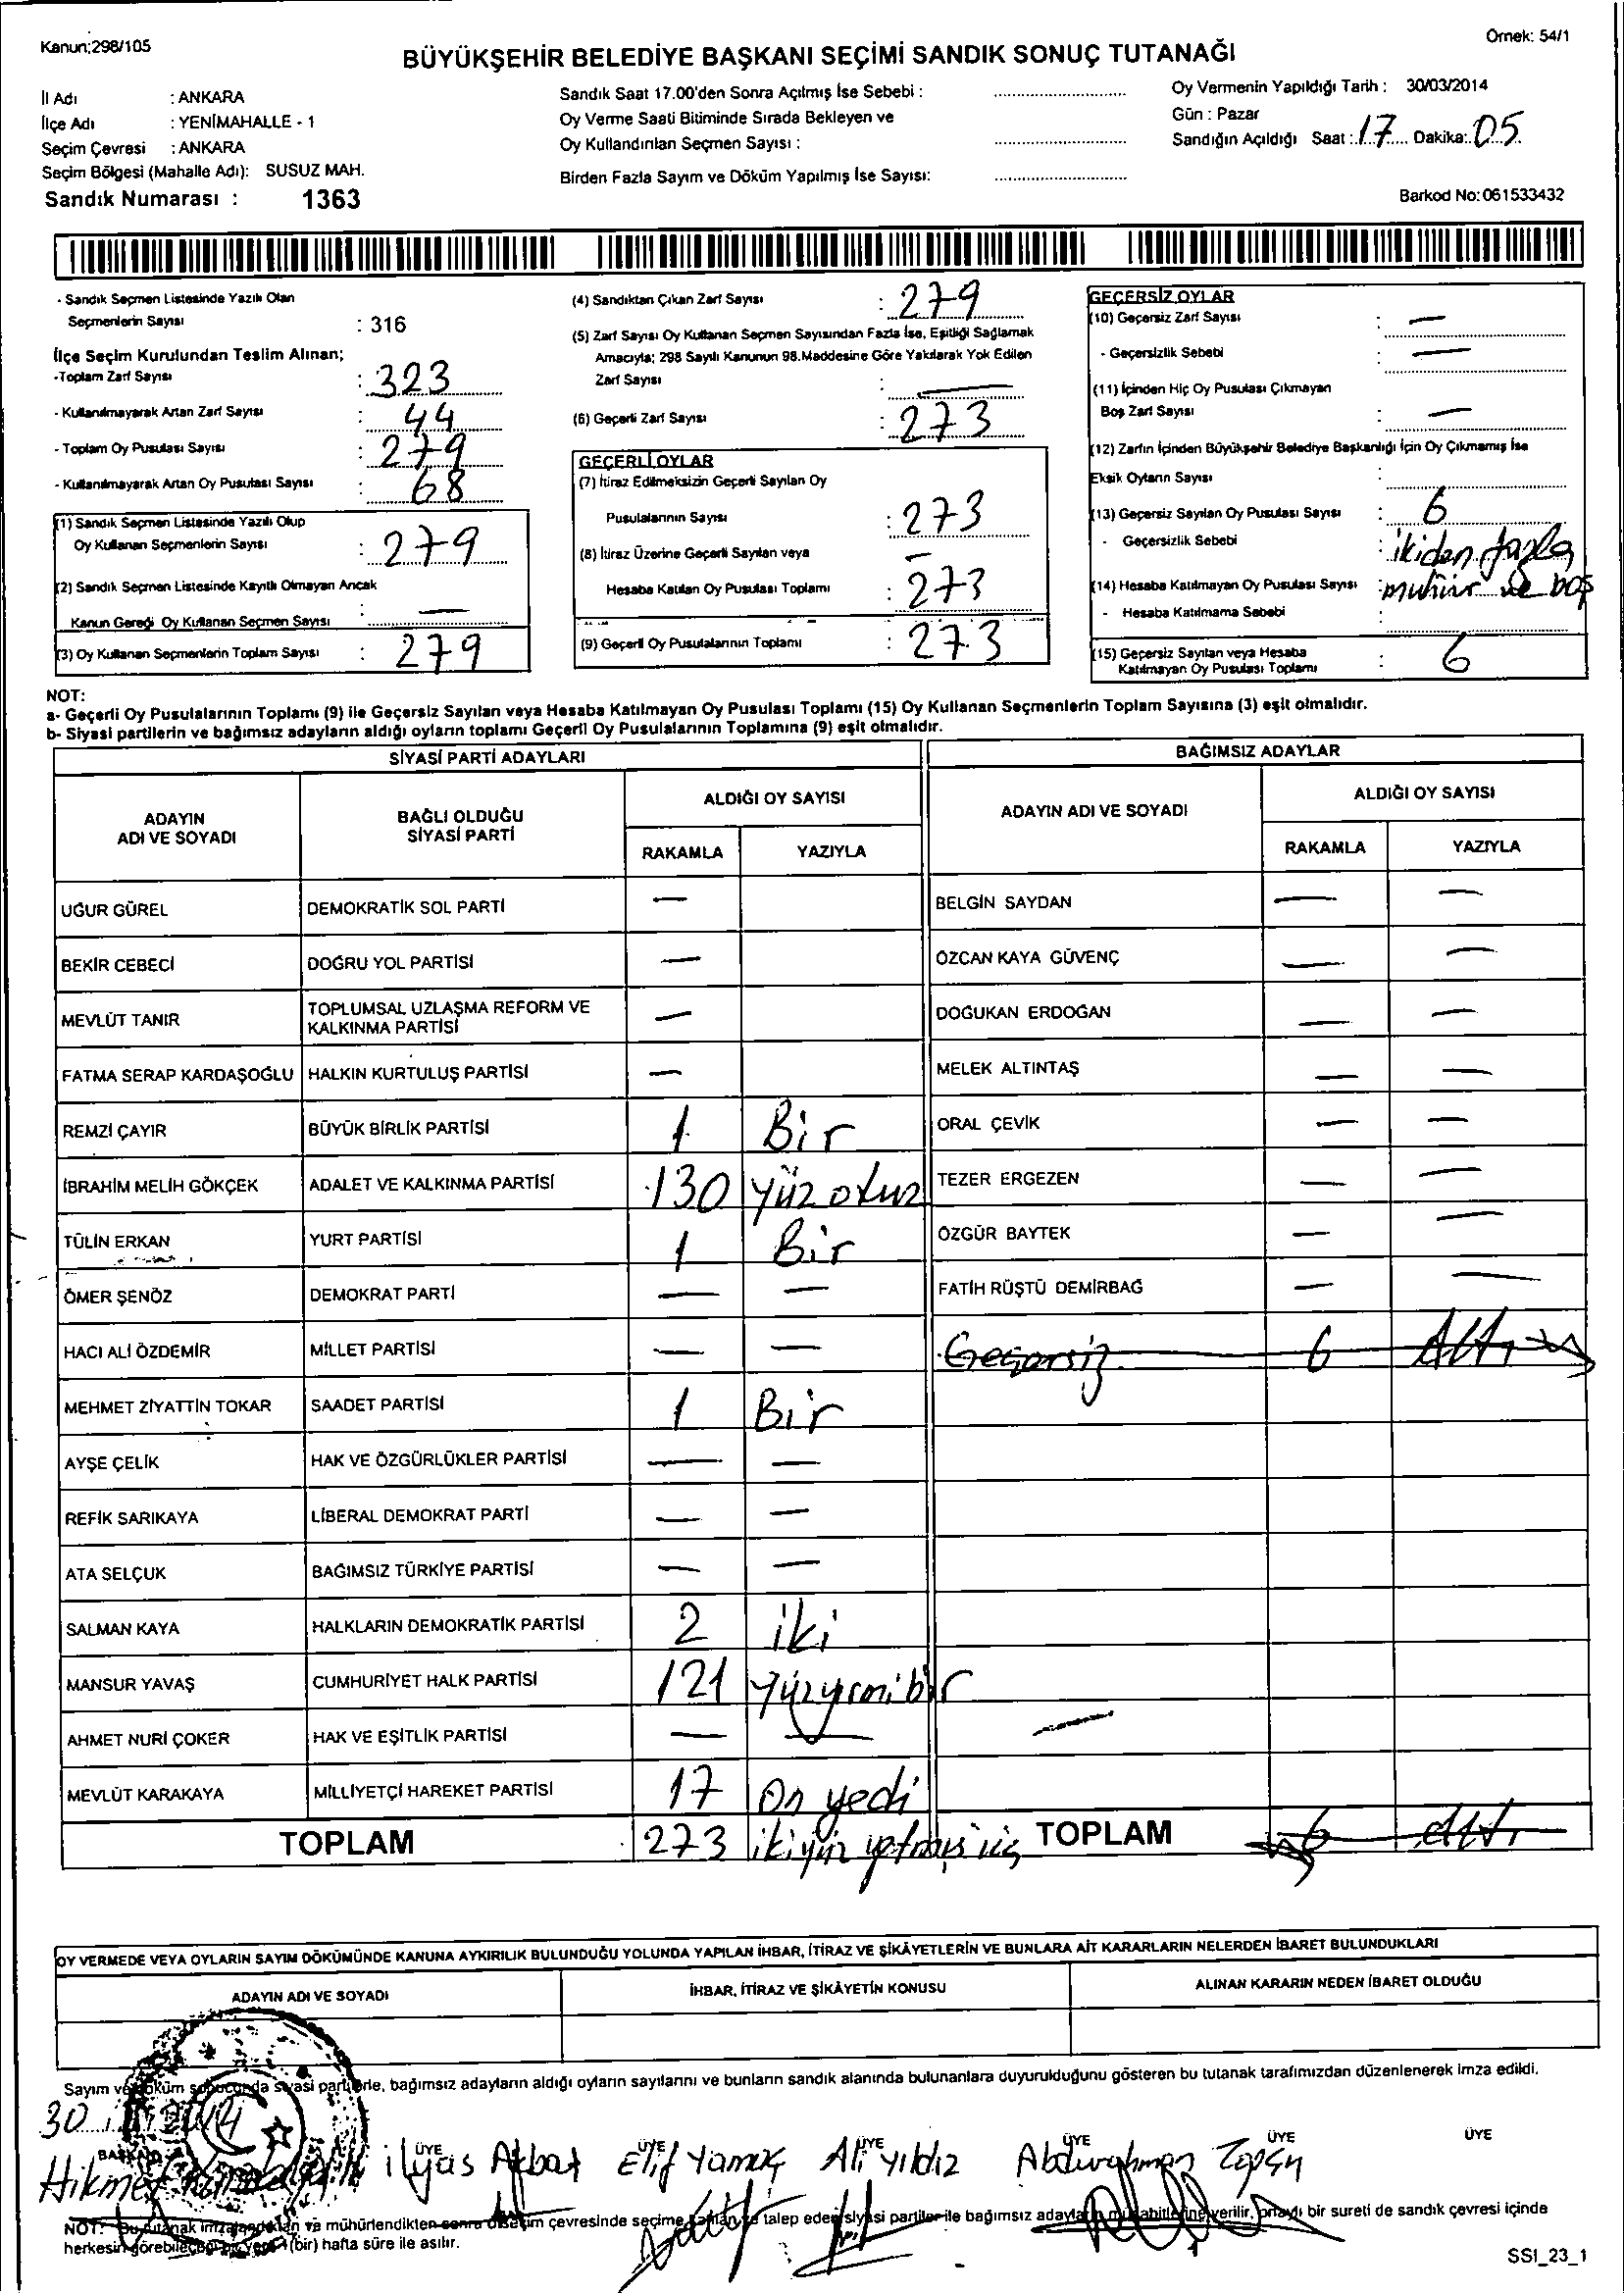 Kanun:298/105
Örnek: 54/1
BÜYÜKŞEHİR BELEDİYE BAŞKANI SEÇİMİ SANDIK SONUÇ TUTANAĞI
İl Adı : ANKARA
İlçe Adı : YENİMAHALLE - 1
Seçim Çevresi : ANKARA
Seçim Bölgesi (Mahalle Adı): SUSUZ MAH.
Sandık Numarası : 1363
Sandık Saat 17.00'den Sonra Açılmış İse Sebebi :
Oy Verme Saati Bitiminde Sırada Bekleyen ve
Oy Kullandırılan Seçmen Sayısı :
Birden Fazla Sayım ve Döküm Yapılmış İse Sayısı:
Oy Vermenin Yapıldığı Tarih : 30/03/2014
Gün : Pazar
Sandığın Açıldığı Saat : 17 Dakika: 05
Barkod No: 061533432
- Sandık Seçmen Listesinde Yazılı Olan
Seçmenlerin Sayısı : 316
İlçe Seçim Kurulundan Teslim Alınan;
-Toplam Zarf Sayısı : 323
- Kullanılmayarak Artan Zarf Sayısı : 44
- Toplam Oy Pusulası Sayısı : 279
- Kullanılmayarak Artan Oy Pusulası Sayısı : 68
(1) Sandık Seçmen Listesinde Yazılı Olup
Oy Kullanan Seçmenlerin Sayısı : 279
(2) Sandık Seçmen Listesinde Kayıtlı Olmayan Ancak
Kanun Gereği Oy Kullanan Seçmen Sayısı : —
(3) Oy Kullanan Seçmenlerin Toplam Sayısı : 279
(4) Sandıktan Çıkan Zarf Sayısı : 279
(5) Zarf Sayısı Oy Kullanan Seçmen Sayısından Fazla İse, Eşitliği Sağlamak
Amacıyla; 298 Sayılı Kanunun 98.Maddesine Göre Yakılarak Yok Edilen
Zarf Sayısı : —
(6) Geçerli Zarf Sayısı : 273
GEÇERLİ OYLAR
(7) İtiraz Edilmeksizin Geçerli Sayılan Oy
Pusulalarının Sayısı : 273
(8) İtiraz Üzerine Geçerli Sayılan veya —
Hesaba Katılan Oy Pusulası Toplamı : 273
(9) Geçerli Oy Pusulalarının Toplamı : 273
GEÇERSİZ OYLAR
(10) Geçersiz Zarf Sayısı : —
- Geçersizlik Sebebi : —
(11) İçinden Hiç Oy Pusulası Çıkmayan
Boş Zarf Sayısı : —
(12) Zarfın İçinden Büyükşehir Belediye Başkanlığı İçin Oy Çıkmamış İse
Eksik Oyların Sayısı :
(13) Geçersiz Sayılan Oy Pusulası Sayısı : 6
- Geçersizlik Sebebi : ikiden fazla
(14) Hesaba Katılmayan Oy Pusulası Sayısı : mühür ve boş
- Hesaba Katılmama Sebebi :
(15) Geçersiz Sayılan veya Hesaba
Katılmayan Oy Pusulası Toplamı : 6
NOT:
a- Geçerli Oy Pusulalarının Toplamı (9) ile Geçersiz Sayılan veya Hesaba Katılmayan Oy Pusulası Toplamı (15) Oy Kullanan Seçmenlerin Toplam Sayısına (3) eşit olmalıdır.
b- Siyasi partilerin ve bağımsız adayların aldığı oyların toplamı Geçerli Oy Pusulalarının Toplamına (9) eşit olmalıdır.
SİYASİ PARTİ ADAYLARI
ADAYIN
ADI VE SOYADI
BAĞLI OLDUĞU
SİYASİ PARTİ
ALDIĞI OY SAYISI
RAKAMLA YAZIYLA
UĞUR GÜREL DEMOKRATİK SOL PARTİ —
BEKİR CEBECİ DOĞRU YOL PARTİSİ —
MEVLÜT TANIR TOPLUMSAL UZLAŞMA REFORM VE
KALKINMA PARTİSİ —
FATMA SERAP KARDAŞOĞLU HALKIN KURTULUŞ PARTİSİ —
REMZİ ÇAYIR BÜYÜK BİRLİK PARTİSİ 1 Bir
İBRAHİM MELİH GÖKÇEK ADALET VE KALKINMA PARTİSİ 130 Yüz otuz
TÜLİN ERKAN YURT PARTİSİ 1 Bir
ÖMER ŞENÖZ DEMOKRAT PARTİ — —
HACI ALİ ÖZDEMİR MİLLET PARTİSİ — —
MEHMET ZİYATTİN TOKAR SAADET PARTİSİ 1 Bir
AYŞE ÇELİK HAK VE ÖZGÜRLÜKLER PARTİSİ — —
REFİK SARIKAYA LİBERAL DEMOKRAT PARTİ — —
ATA SELÇUK BAĞIMSIZ TÜRKİYE PARTİSİ — —
SALMAN KAYA HALKLARIN DEMOKRATİK PARTİSİ 2 iki
MANSUR YAVAŞ CUMHURİYET HALK PARTİSİ 121 Yüzyirmibir
AHMET NURİ ÇOKER HAK VE EŞİTLİK PARTİSİ — —
MEVLÜT KARAKAYA MİLLİYETÇİ HAREKET PARTİSİ 17 On yedi
TOPLAM 273 ikiyüz yetmiş üç
BAĞIMSIZ ADAYLAR
ADAYIN ADI VE SOYADI
ALDIĞI OY SAYISI
RAKAMLA YAZIYLA
BELGİN SAYDAN — —
ÖZCAN KAYA GÜVENÇ — —
DOĞUKAN ERDOĞAN — —
MELEK ALTINTAŞ — —
ORAL ÇEVİK — —
TEZER ERGEZEN — —
ÖZGÜR BAYTEK — —
FATİH RÜŞTÜ DEMİRBAĞ — —
Geçersiz 6 Altı
TOPLAM 6 Altı
OY VERMEDE VEYA OYLARIN SAYIM DÖKÜMÜNDE KANUNA AYKIRILIK BULUNDUĞU YOLUNDA YAPILAN İHBAR, İTİRAZ VE ŞİKÂYETLERİN VE BUNLARA AİT KARARLARIN NELERDEN İBARET BULUNDUKLARI
ADAYIN ADI VE SOYADI İHBAR, İTİRAZ VE ŞİKÂYETİN KONUSU ALINAN KARARIN NEDEN İBARET OLDUĞU
Sayım ve döküm sonucunda siyasi partilerle, bağımsız adayların aldığı oyların sayılarını ve bunların sandık alanında bulunanlara duyurulduğunu gösteren bu tutanak tarafımızdan düzenlenerek imza edildi.
30 2014
BAŞKAN ÜYE ÜYE ÜYE ÜYE ÜYE ÜYE
Hikmet ilyas Akbaş Elif Yamaç Ali Yıldız Abdurrahman Topçu
NOT: Bu tutanak imzalandıktan ve mühürlendikten sonra o seçim çevresinde seçime katılan ve talep eden siyasi partiler ile bağımsız adayların müşahitlerine verilir, onaylı bir sureti de sandık çevresi içinde
herkesin görebileceği bir yere 1 (bir) hafta süre ile asılır.
SSI_23_1